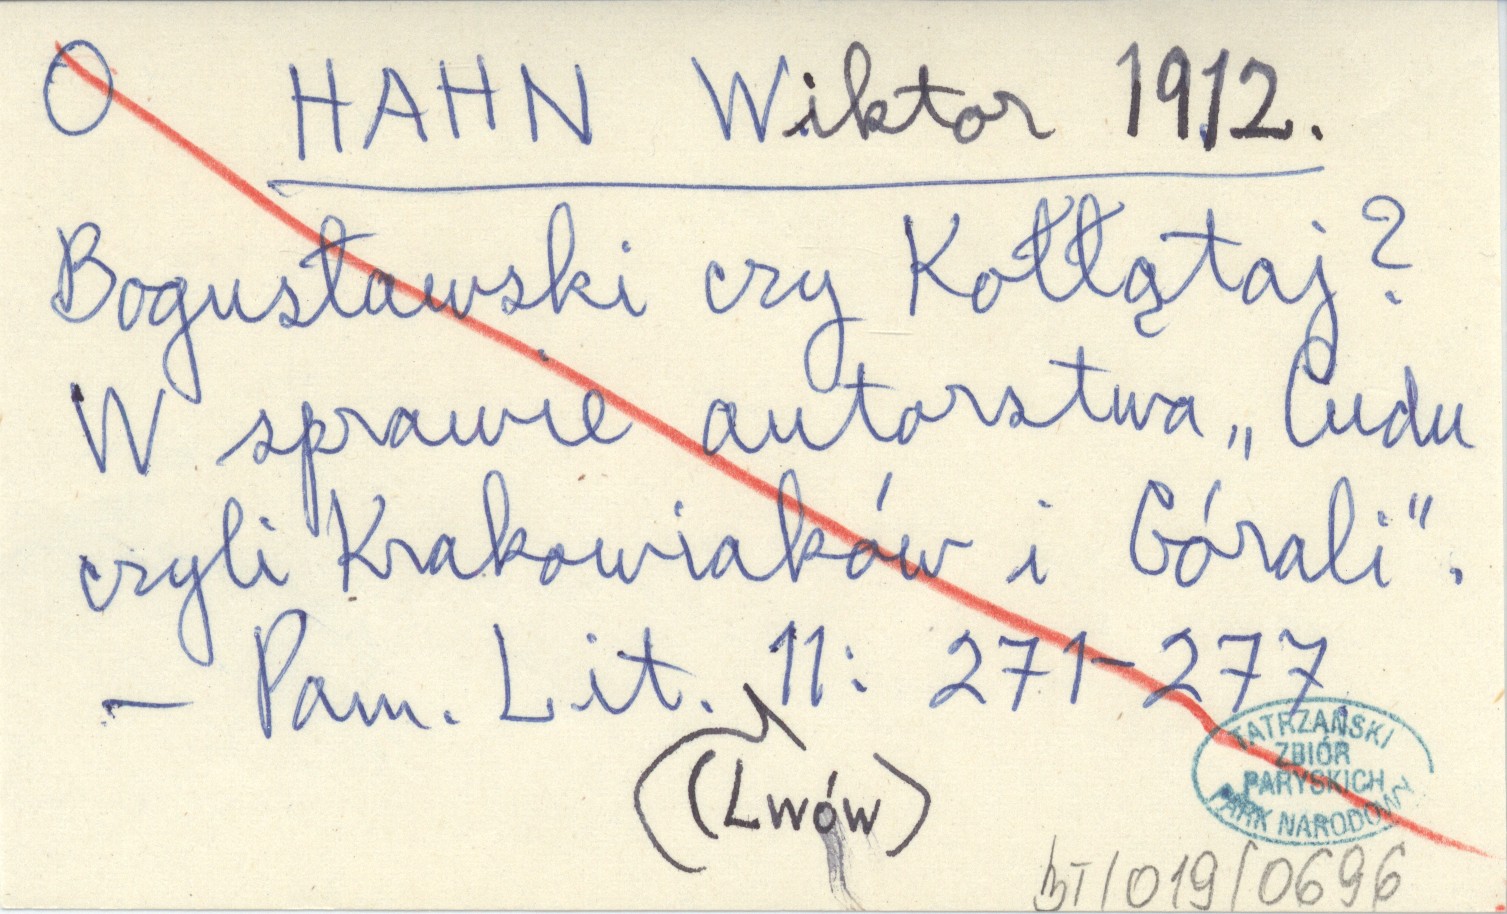 O HAHN Wiktor 1912.
Bogusławski czy Kołłątaj?
W sprawie autorstwa „Cudu
czyli Krakowiaków i Górali".
- Pam. Lit. 11: 271-277.
(Lwów)
TATRZAŃSKI
ZBIÓR
PARYSKICH
PARK NARODOWY
BT/019/0696